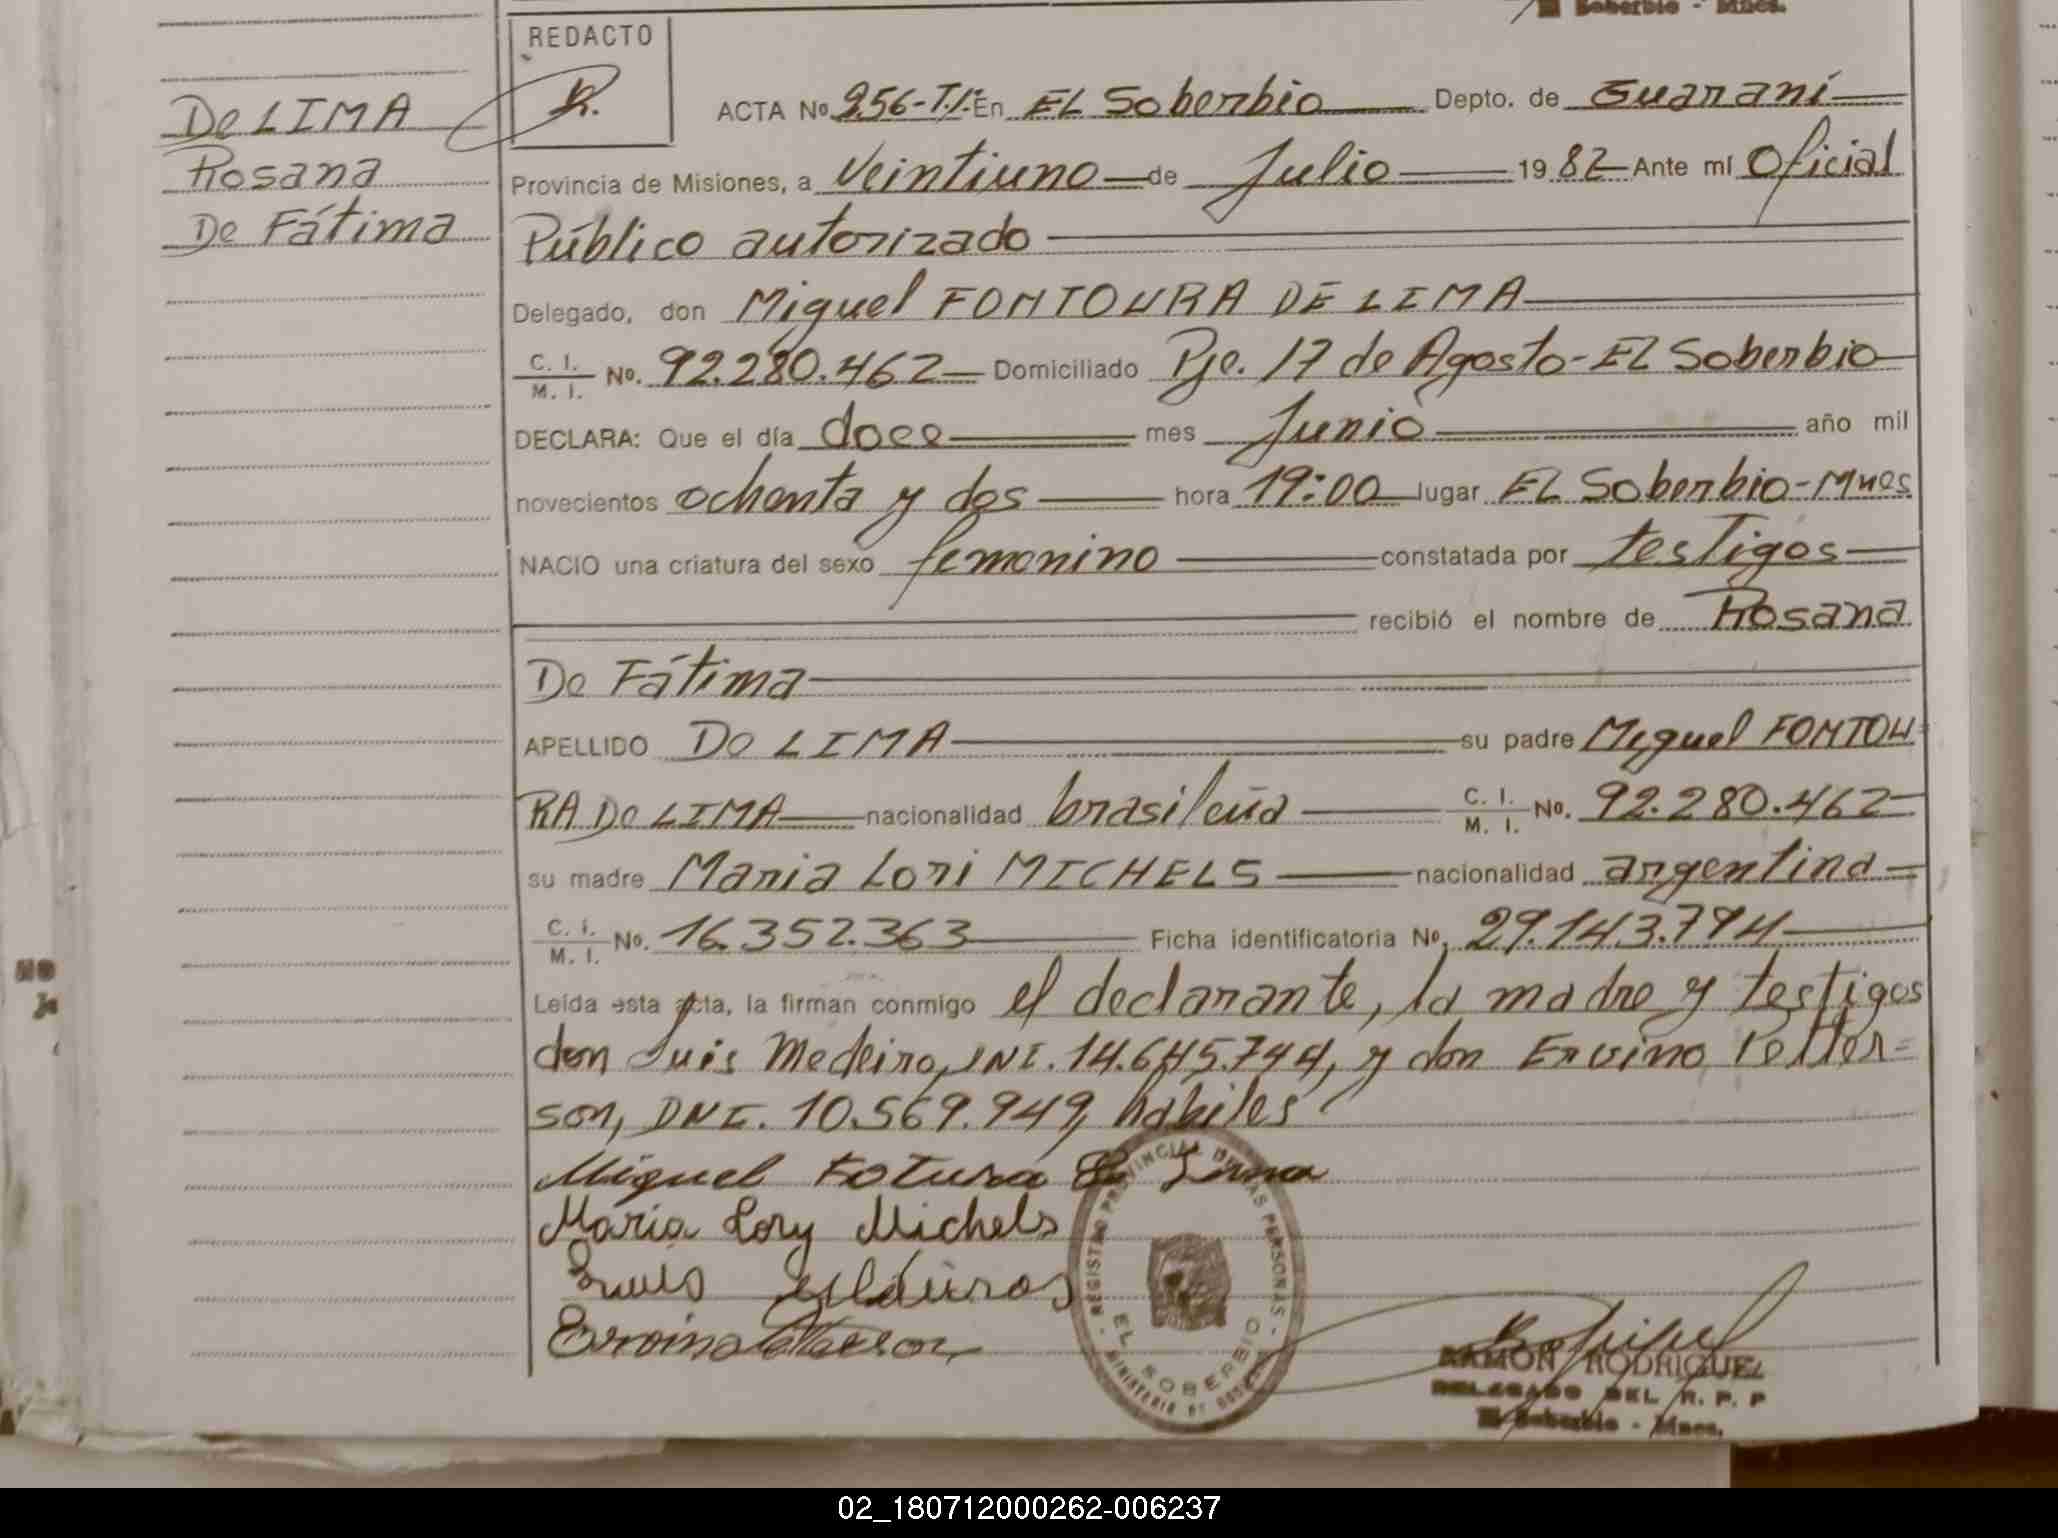 El Soberbio - Mnes.
REDACTO
R.
De LIMA
Rosana
De Fátima
ACTA Nº 256-T.1: En EL Soberbio Depto. de Guaraní
Provincia de Misiones, a Veintiuno de Julio 1982 Ante mí Oficial
Público autorizado
Delegado, don Miguel FONTOURA DE LIMA
C. I. M. I. No. 92.280.462 Domiciliado Pje. 17 de Agosto - EL Soberbio
DECLARA: Que el día doce mes Junio año mil
novecientos ochenta y dos hora 19:00 lugar EL Soberbio - Mnes
NACIO una criatura del sexo femenino constatada por testigos
recibió el nombre de Rosana
De Fátima
APELLIDO De LIMA su padre Miguel FONTOU=
RA De LIMA nacionalidad brasileña C. I. M. I. No. 92.280.462
su madre Maria Lori MICHELS nacionalidad argentina
C. I. M. I. No. 16.352.363 Ficha identificatoria No. 29.143.794
Leída esta acta, la firman conmigo el declarante, la madre y testigos
don Luis Medeiro, DNI. 14.645.744, y don Ervino Petter=
son, DNI. 10.569.949, habiles
Miguel Fotura De Lima
Maria Lory Michels
Luis
Ervino
REGISTRO PROVINCIAL DE LAS PERSONAS
EL SOBERBIO
MINISTERIO DE GOBIERNO
RAMON RODRIGUEZ
DELEGADO DEL R. P. P
El Soberbio - Mnes.
02_180712000262-006237